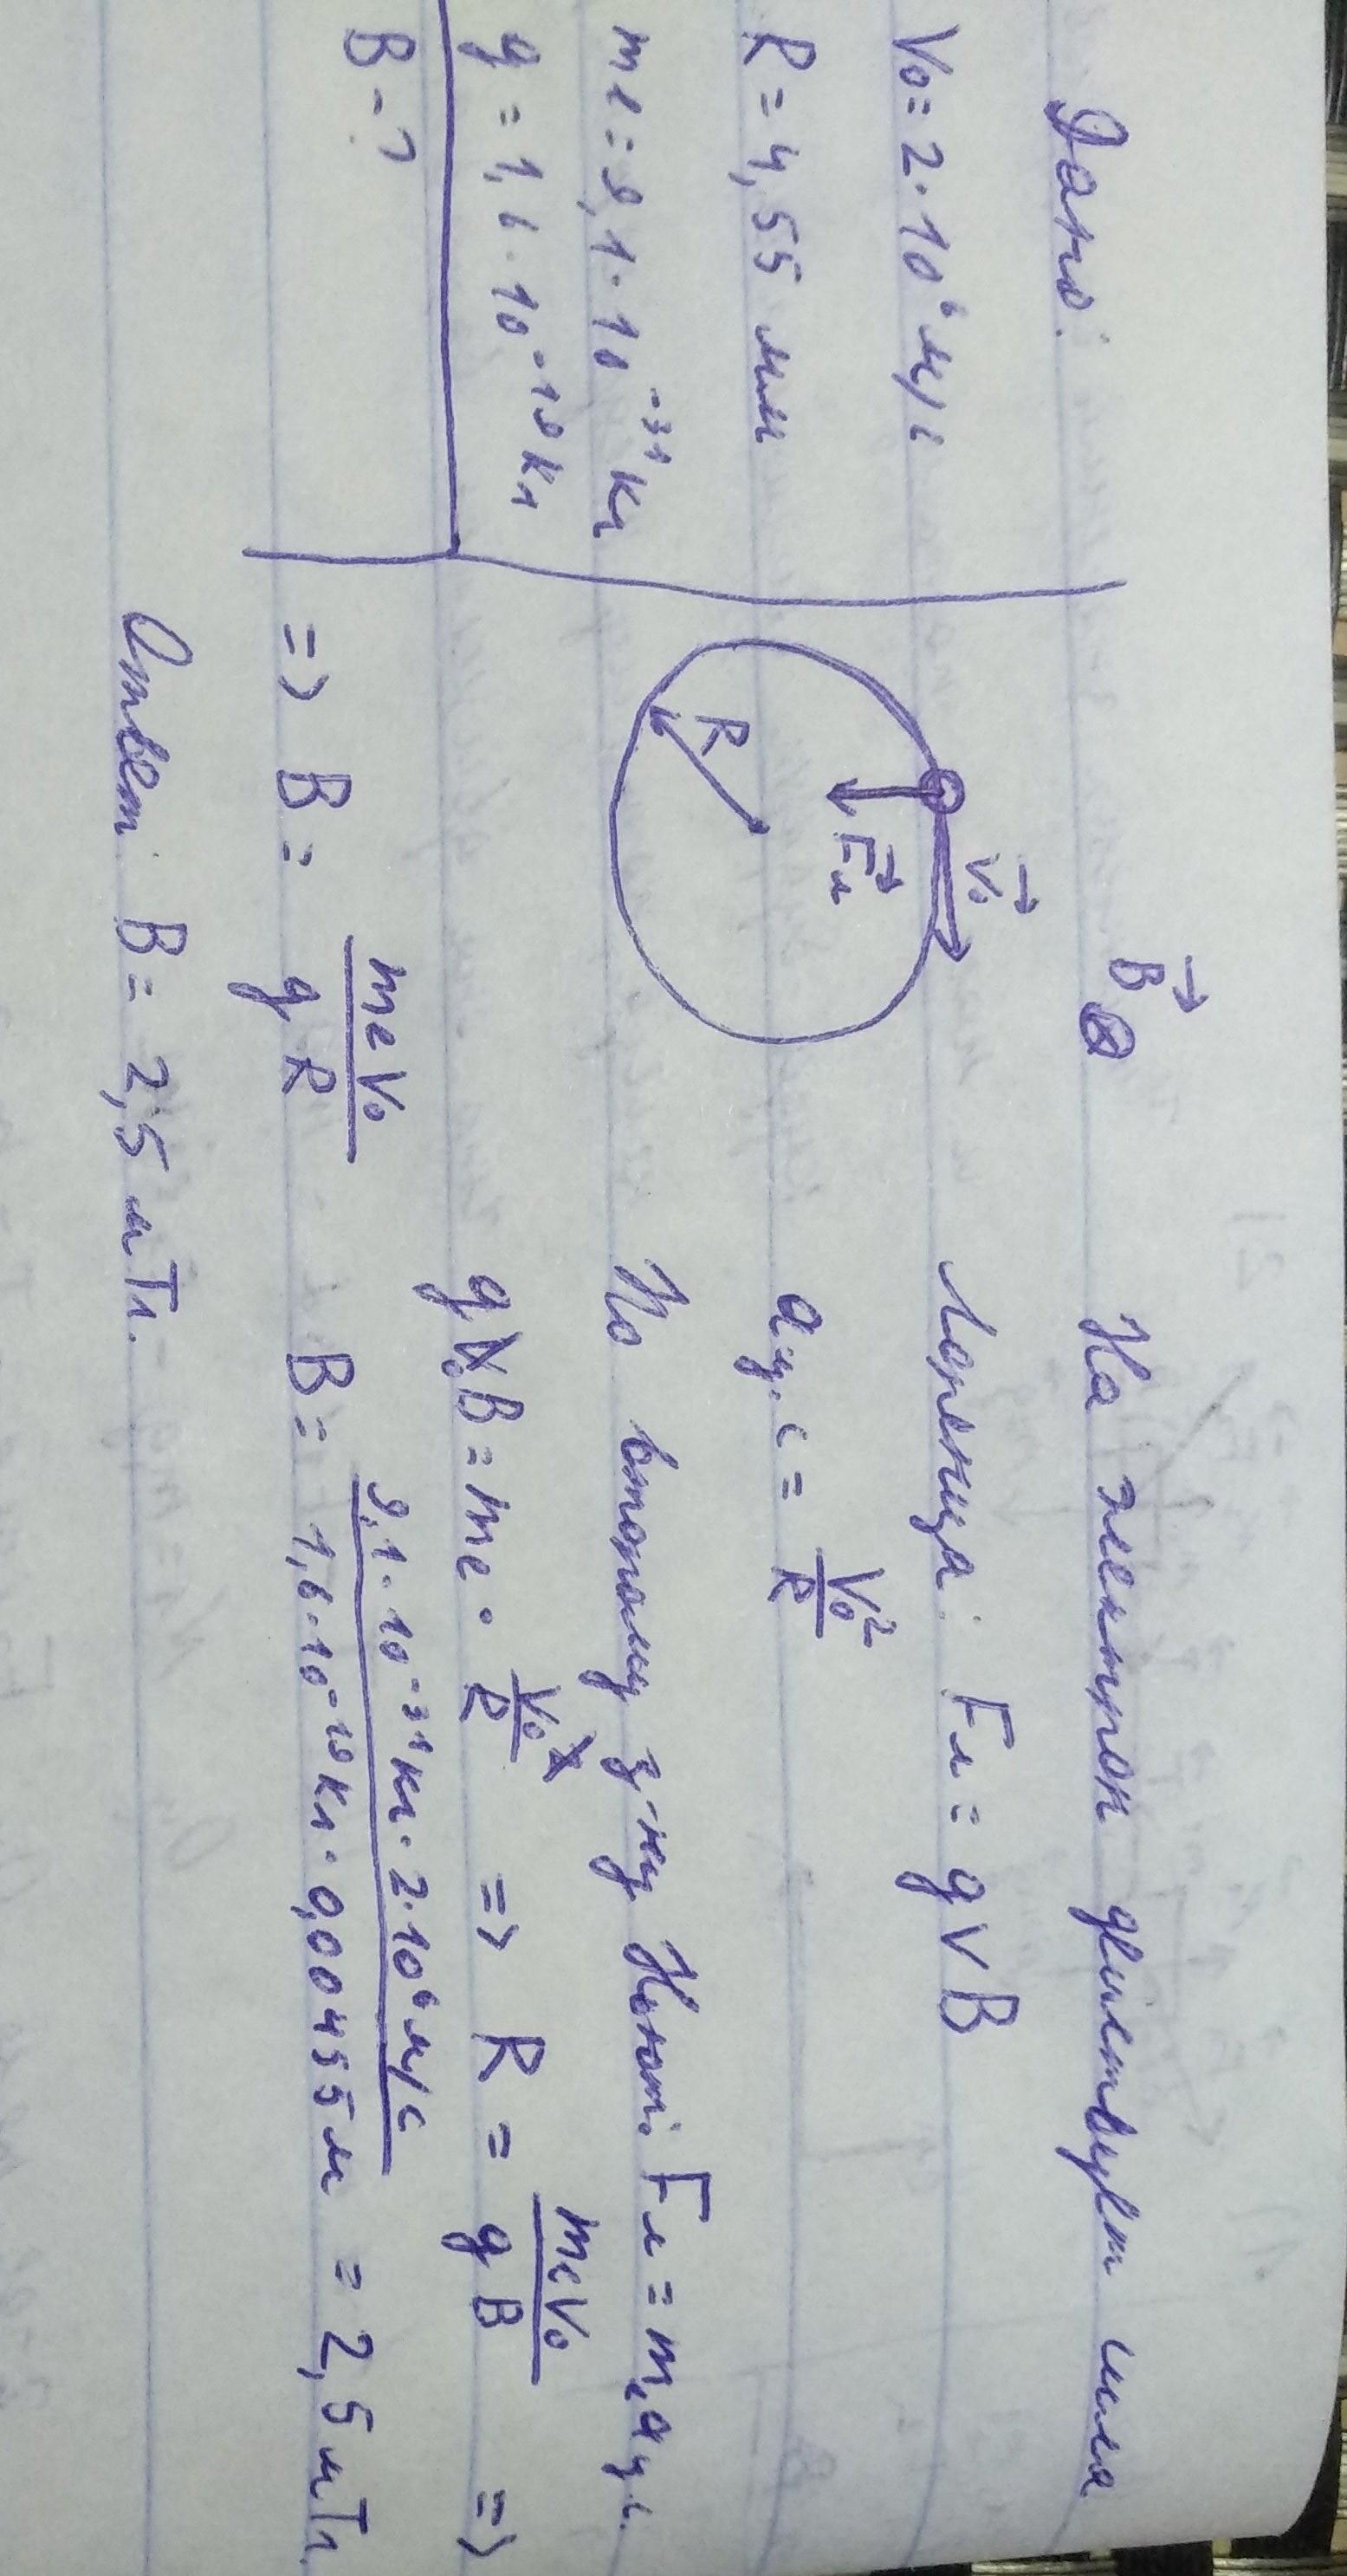 Дано:
V₀ = 2·10⁶ м/с
R = 4,55 мм
me = 9,1·10⁻³¹ кг
q = 1,6·10⁻¹⁹ Кл
B - ?
B⃗ ⊗
V⃗₀
F⃗л
R
На электрон действует сила
Лоренца: Fл = qVB
aц.с = V₀²/R
По второму з-ну Ньют.: Fл = mₑaц.с.
qV₀B = me · V₀²/R => R = meV₀/qB =>
=> B = meV₀/qR B = 9,1·10⁻³¹ кг · 2·10⁶ м/с / 1,6·10⁻¹⁹ Кл · 0,00455 м = 2,5 мТл.
Ответ: B = 2,5 мТл.